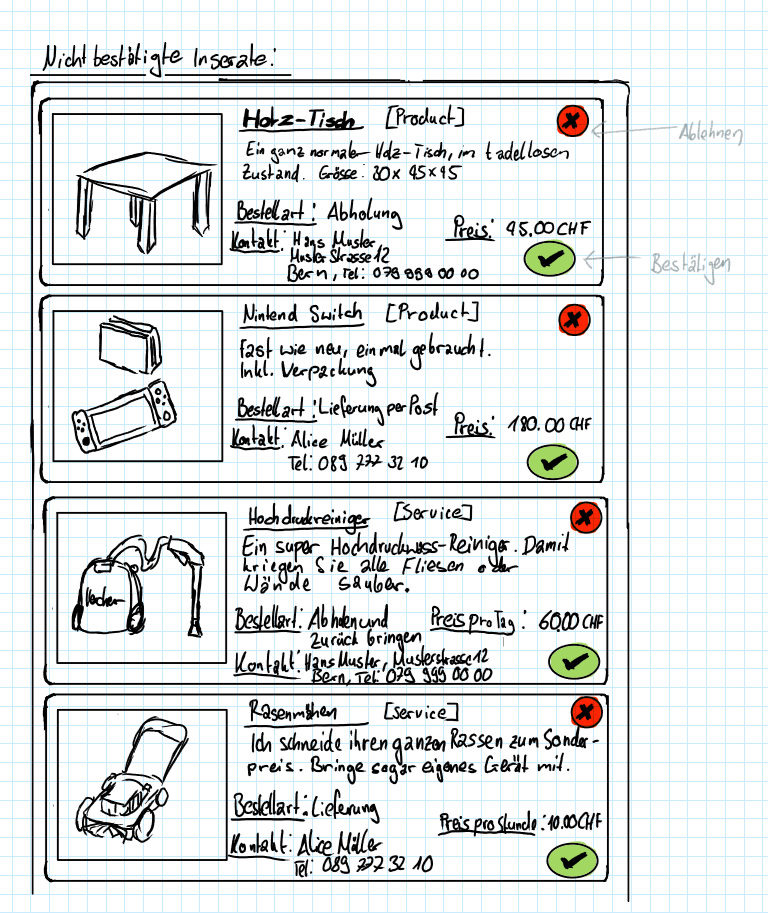 Nicht bestätigte Inserate:
Holz-Tisch [Product]
Ablehnen
Ein ganz normaler Holz-Tisch, im tadellosen
Zustand. Grösse: 30x45x45
Bestellart: Abholung
Preis: 45.00 CHF
Kontakt: Hans Muster
Muster Strasse 12
Bern, Tel: 079 999 00 00
Bestätigen
Nintend Switch [Product]
fast wie neu, einmal gebraucht.
Inkl. Verpackung
Bestellart: Lieferung per Post
Preis: 180.00 CHF
Kontakt: Alice Müller
Tel: 089 777 32 10
Hochdruckreiniger [Service]
Ein super Hochdruckwass-Reiniger. Damit
kriegen Sie alle Fliesen oder
Wände sauber.
Bestellart: Abholen und
zurück bringen
Preis pro Tag: 60.00 CHF
Kontakt: Hans Muster, Musterstrasse 12
Bern, Tel: 079 999 00 00
Rasenmähen [Service]
Ich schneide ihren ganzen Rassen zum Sonder-
preis. Bringe sogar eigenes Gerät mit.
Bestellart: Lieferung
Preis pro Stunde: 10.00 CHF
Kontakt: Alice Müller
Tel: 089 777 32 10